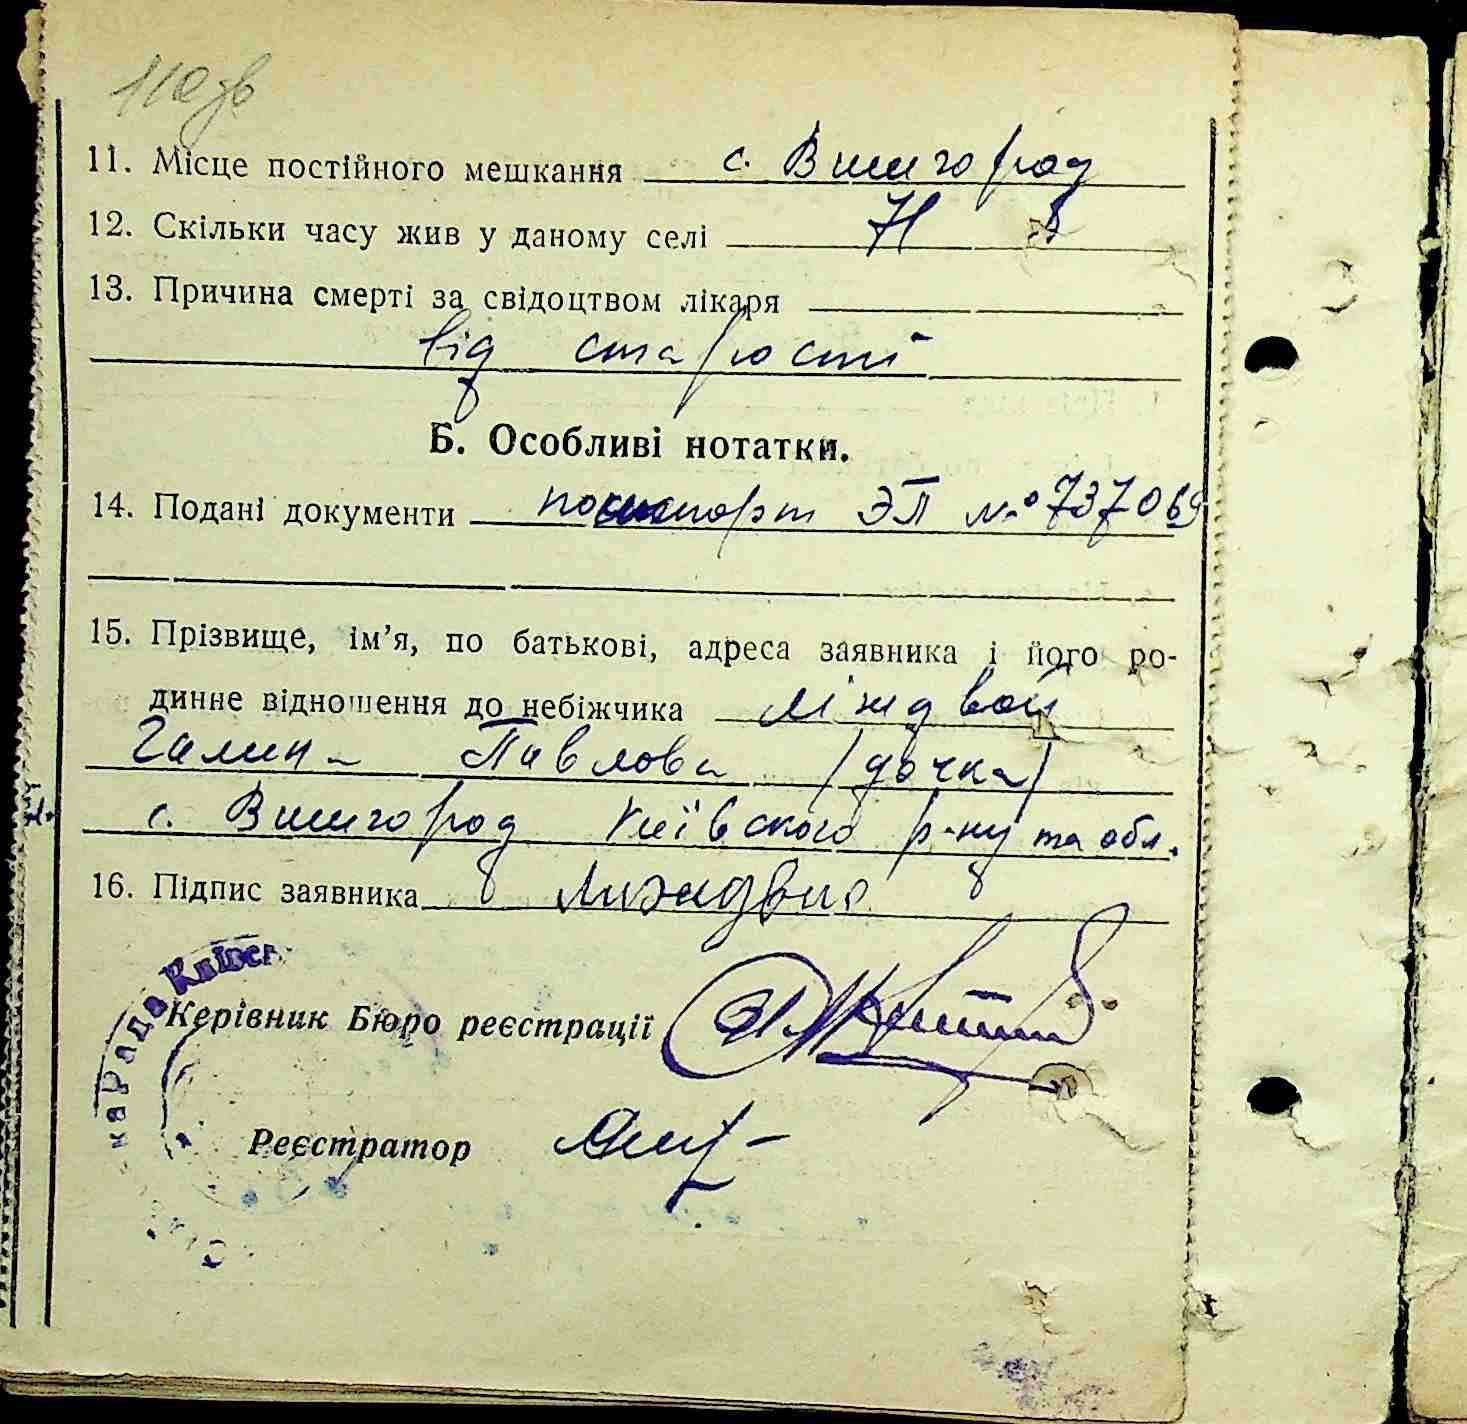 110 зв
11. Місце постійного мешкання с. Вишгород
12. Скільки часу жив у даному селі 71
13. Причина смерті за свідоцтвом лікаря
від старості
Б. Особливі нотатки.
14. Подані документи паспорт ЭП № 737069
15. Прізвище, ім’я, по батькові, адреса заявника і його ро-
динне відношення до небіжчика
Галина Павлова (дочка)
с. Вишгород Київського р-ну та обл.
16. Підпис заявника
Керівник Бюро реєстрації
Реєстратор